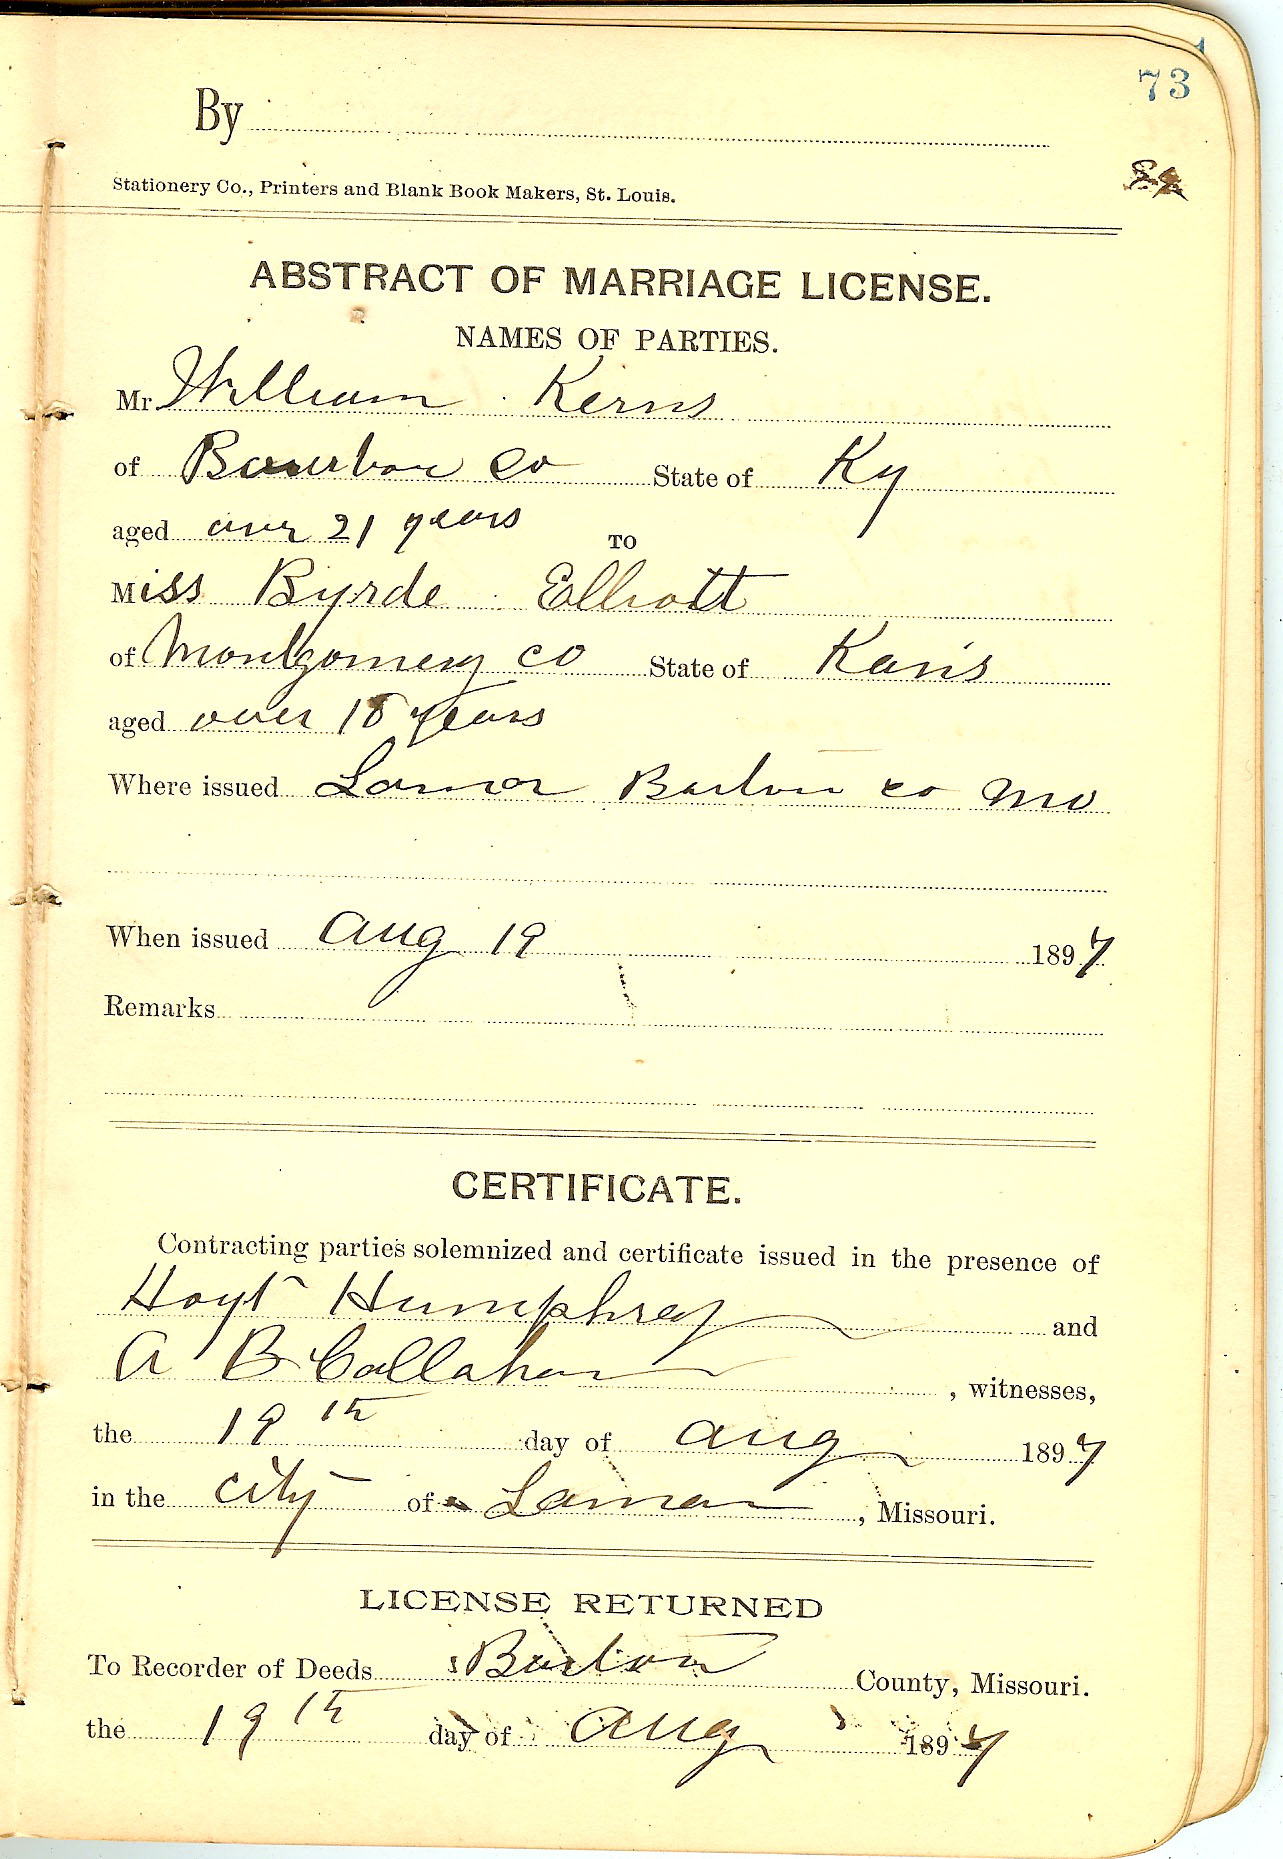 73
By
Stationery Co., Printers and Blank Book Makers, St. Louis.
ABSTRACT OF MARRIAGE LICENSE.
NAMES OF PARTIES.
Mr William Kerns
of Bourbon Co State of Ky
aged over 21 years
TO
Miss Byrde Elliott
of Montgomery Co State of Kans
aged over 18 years
Where issued Lamar Barton Co Mo
When issued Aug 19 1897
Remarks
CERTIFICATE.
Contracting parties solemnized and certificate issued in the presence of
Hoyt Humphrey and
A B Callahan, witnesses,
the 19th day of Aug 1897
in the City of Lamar, Missouri.
LICENSE RETURNED
To Recorder of Deeds Barton County, Missouri.
the 19th day of Aug 1897